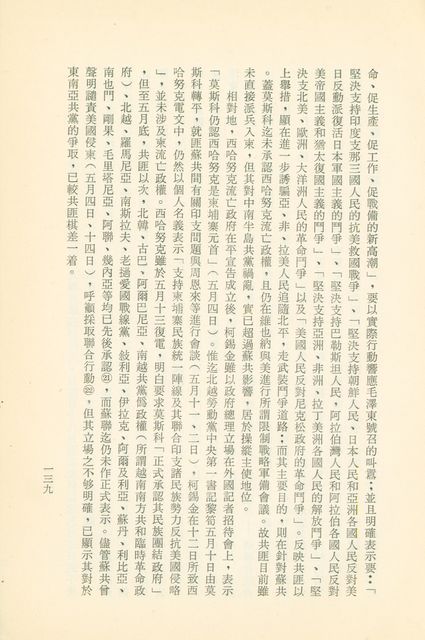 命、促生產、促工作、促戰備的新高潮」，要以實際行動響應毛澤東號召的叫囂；並且明確表示要：「
堅決支持印度支那三國人民的抗美救國戰爭」、「堅決支持朝鮮人民、日本人民和亞洲各國人民反對美
日反動派復活日本軍國主義的鬥爭」、「堅決支持巴勒斯坦人民，阿拉伯灣人民和阿拉伯各國人民反對
美帝國主義和猶太復國主義的鬥爭」、「堅決支持亞洲、非洲、拉丁美洲各國人民的解放鬥爭」、「堅
決支北美、歐洲、大洋洲人民的革命鬥爭」以及「美國人民反對尼克松政府的革命鬥爭」。反映共匪以
上舉措，顯在進一步誘騙亞、非、拉美人民追隨北平，走武裝鬥爭道路；而其主要目的，則在針對蘇共
。蓋莫斯科迄未承認西哈努克流亡政權，且仍在維也納與美進行所謂限制戰略軍備會議。故共匪目前雖
未直接派兵入柬，但其對中南半島共黨禍亂，實已超過蘇共影響，居於操縱主使地位。
相對地，西哈努克流亡政府在平宣告成立後，柯錫金雖以政府總理立場在外國記者招待會上，表示
「莫斯科仍認西哈努克是柬埔寨元首」（五月四日）。惟迄北越勞動黨中央第一書記黎筍五月十日由莫
斯科轉平，就匪蘇共間有關印支問題與周恩來等進行會談（五月十一、二日），柯錫金在十二日所致西
哈努克電文中，仍然以個人名義表示「支持柬埔寨民族統一陣線及其聯合印支諸民族勢力反抗美國侵略
」，並未涉及柬流亡政權。西哈努克雖於五月十三日復電，明白要求莫斯科「正式承認其民族團結政府」
，但至五月底，共匪以次，北韓、古巴、阿爾巴尼亞、南越共黨僞政權（所謂越南南方共和臨時革命政
府）、北越、羅馬尼亞、南斯拉夫、老撾愛國戰線黨、敍利亞、伊拉克、阿爾及利亞、蘇丹、利比亞、
南也門、剛果、毛里塔尼亞、阿聯、幾內亞等均已先後承認㉑，而蘇聯迄仍未作正式表示。儘管蘇共曾
聲明譴責美國侵柬（五月四日、十四日），呼籲採取聯合行動㉒，但其立場之不够明確，已顯示其對於
東南亞共黨的爭取，已較共匪棋差一着。
一三九